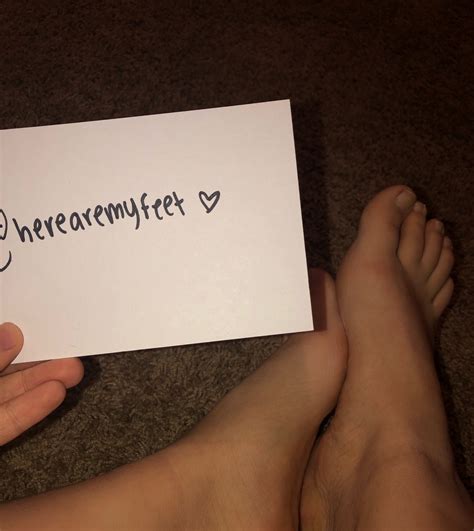 @herearemyfeet ♡